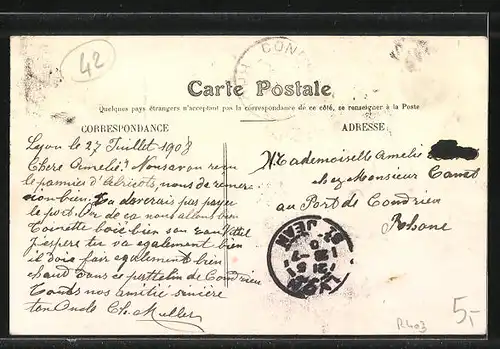 42
CON
Carte Postale
Quelques pays étrangers n'acceptant pas la correspondance de ce côté, se renseigner à la Poste
CORRESPONDANCE
ADRESSE
Lyon le 27 Juillet 1908
Chere Amelie! Nous avon reçu
le pannier d'Abricots, nous de remere
cion bien, Tu deverais pas payer
le port. Or de ca nous allons bien
Toinette boie bien son eau Vittel
J'espere ter va egalement bien
il dois fair egalement bien
chaud dans ce petit elin de Condrieu
Touts nos amitiée sinsère
ton Oncle Ch. Muller
Mademoiselle Amelie
chez Monsieur Canet
au Port de Condrieu
Rhone
LYON
ST. JEAN
5,-
R403